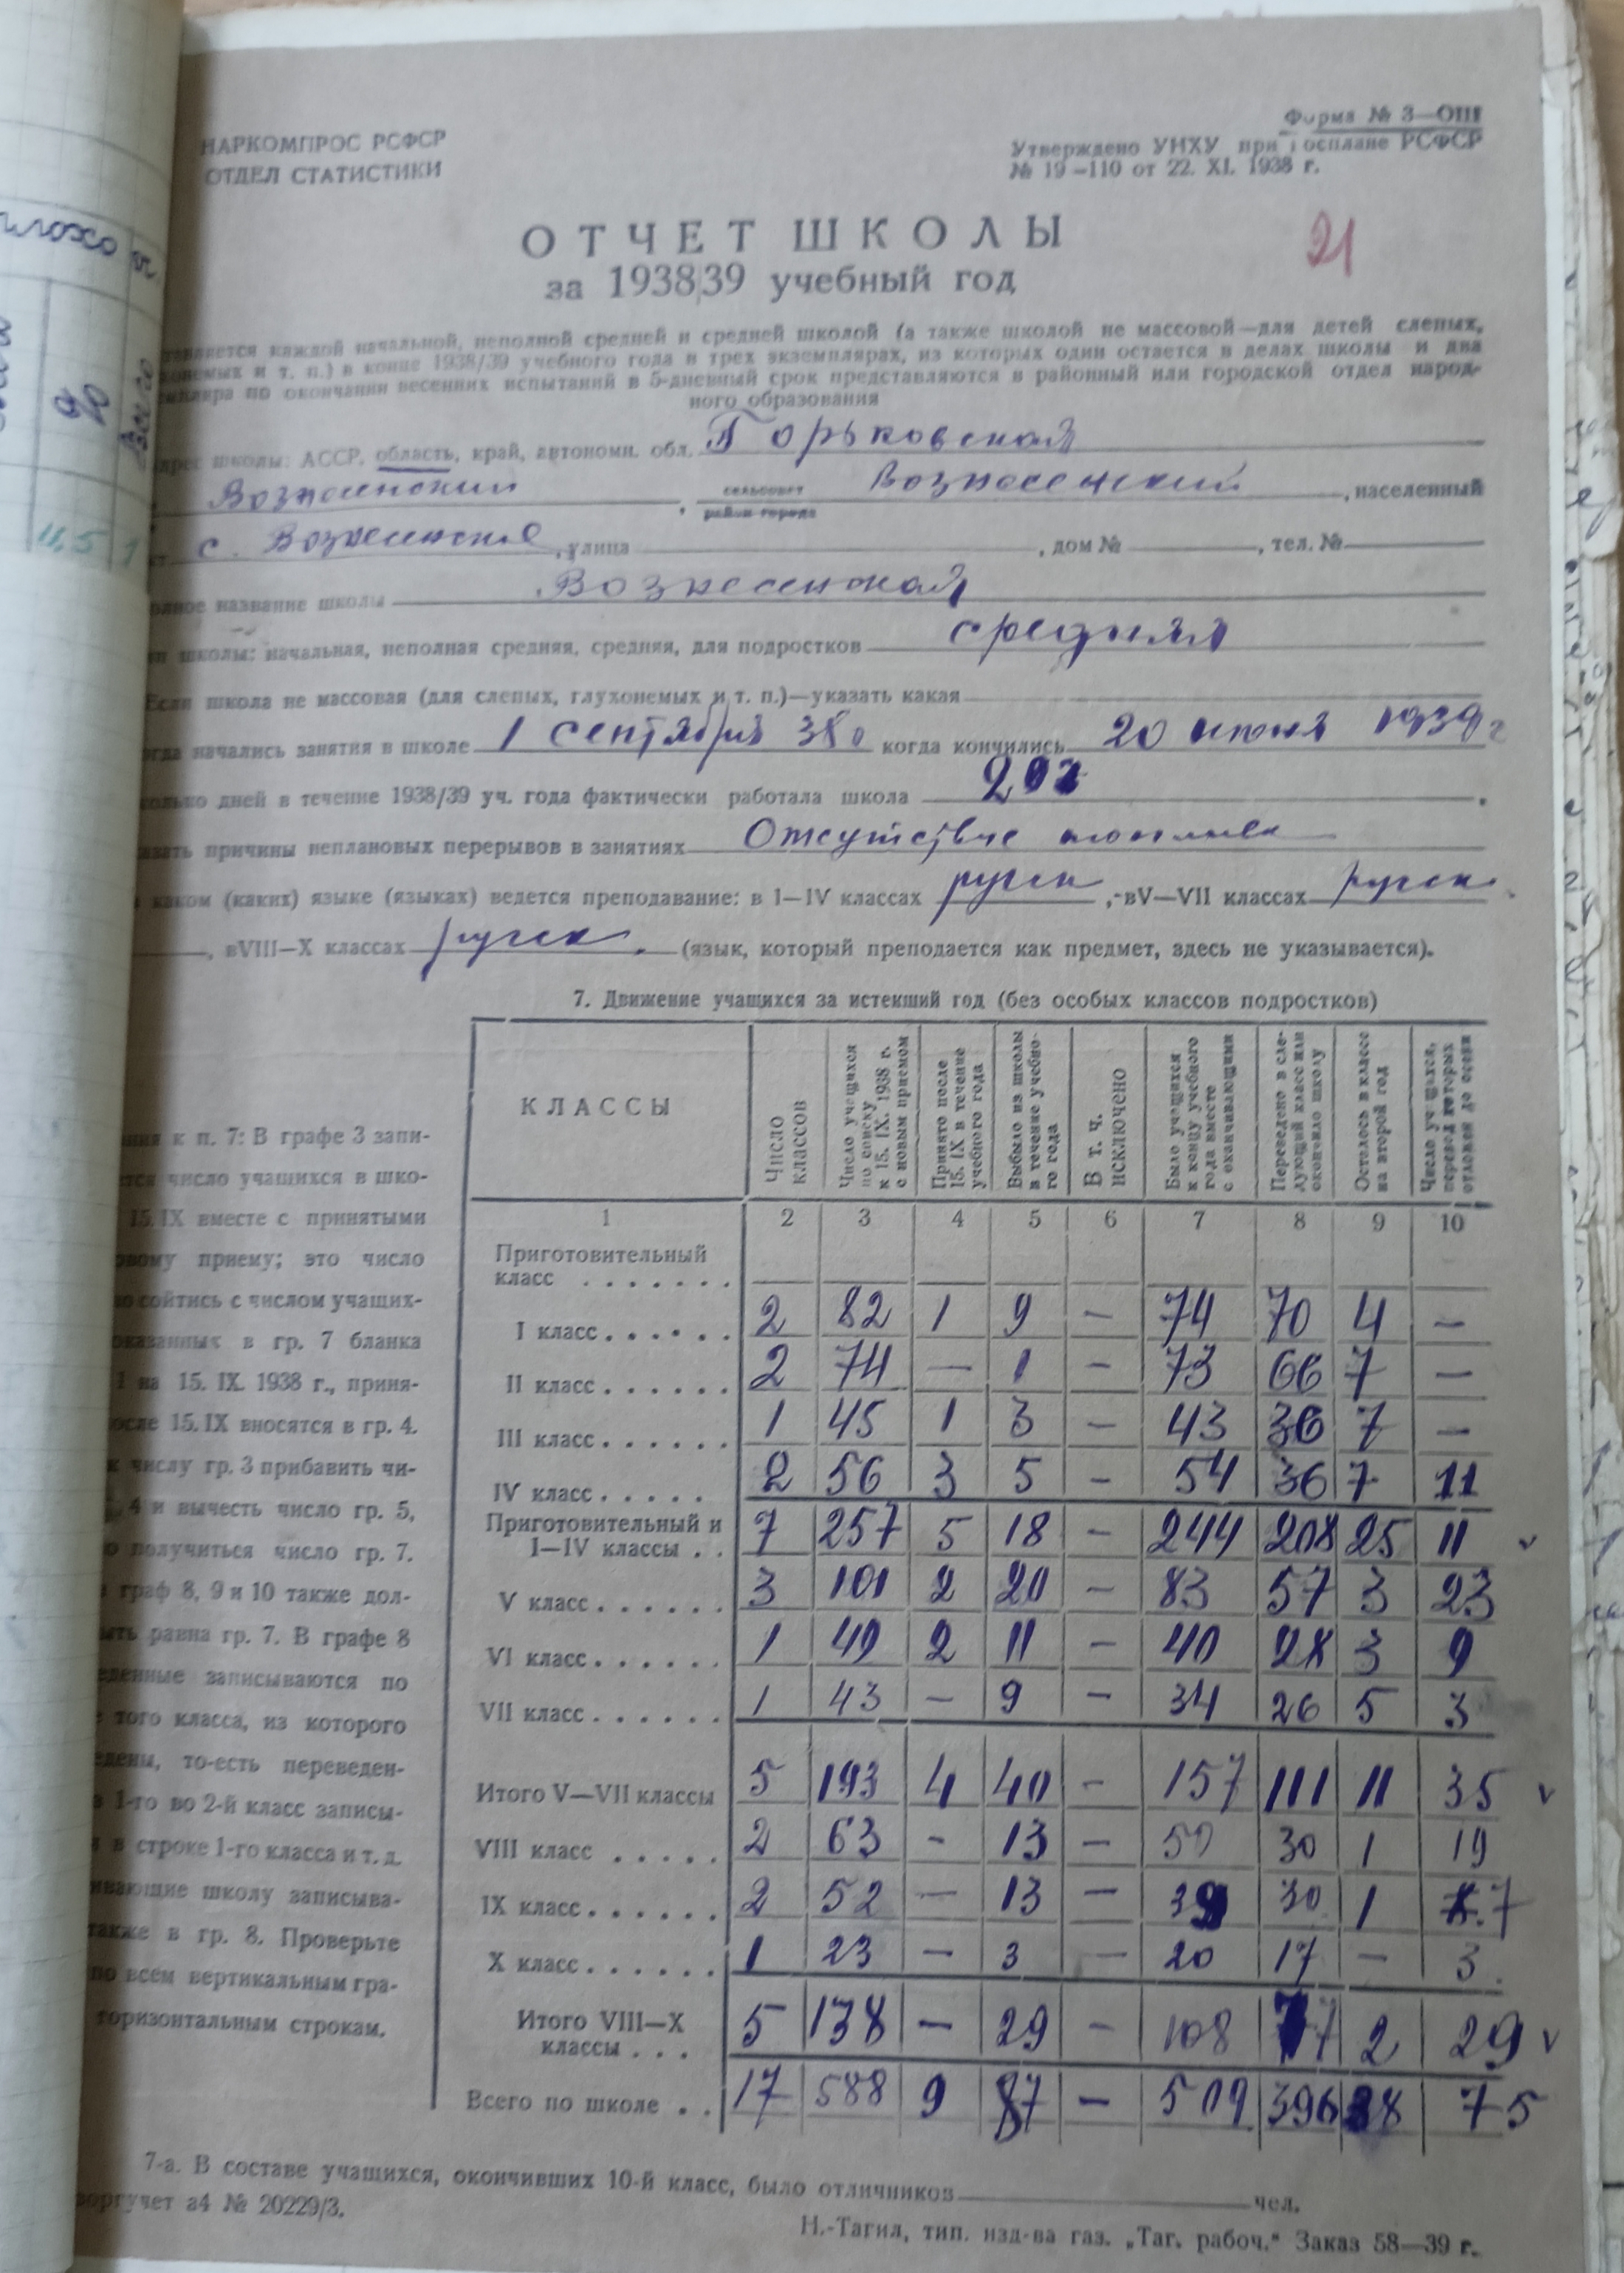 НАРКОМПРОС РСФСР
ОТДЕЛ СТАТИСТИКИ
Форма № 3—ОШ
Утверждено УНХУ при Госплане РСФСР
№ 19—110 от 22. XI. 1938 г.
ОТЧЕТ ШКОЛЫ
за 1938/39 учебный год
21
каждой начальной, неполной средней и средней школой (а также школой не массовой—для детей слепых,
и т. п.) в конце 1938/39 учебного года в трех экземплярах, из которых один остается в делах школы и два
по окончании весенних испытаний в 5-дневный срок представляются в районный или городской отдел народ-
ного образования
школы: АССР, область, край, автономн. обл. Горьковская
Вознесенский, сельсовет район города Вознесенский, населенный
с. Вознесенское, улица , дом № , тел. №
название школы Вознесенская
школы: начальная, неполная средняя, средняя, для подростков средняя
Если школа не массовая (для слепых, глухонемых и т. п.)—указать какая
начались занятия в школе 1 сентября 38 когда кончились 20 июня 1939 г
дней в течение 1938/39 уч. года фактически работала школа
причины неплановых перерывов в занятиях Отсутствие топлива
каком (каких) языке (языках) ведется преподавание: в I—IV классах русск, в V—VII классах русск.
, в VIII—X классах русск. (язык, который преподается как предмет, здесь не указывается).
7. Движение учащихся за истекший год (без особых классов подростков)
КЛАССЫ
Число классов
Число учащихся по списку к 15. IX. 1938 г. с новым приемом
Принято после 15. IX в течение учебного года
Выбыло из школы в течение учебного года
В т. ч. исключено
Было учащихся к концу учебного года вместе с оканчивающими
Переведено в следующий класс или окончило школу
Осталось в классе на второй год
Число учащихся, перевод которых отложен до осени
1 2 3 4 5 6 7 8 9 10
Приготовительный
класс
I класс 2 82 1 9 — 74 70 4 —
II класс 2 74 — 1 — 73 66 7 —
III класс 1 45 1 3 — 43 36 7 —
IV класс 2 56 3 5 — 54 36 7 11
Приготовительный и
I—IV классы 7 257 5 18 — 244 208 25 11 v
V класс 3 101 2 20 — 83 57 3 23
VI класс 1 49 2 11 — 40 28 3 9
VII класс 1 43 — 9 — 34 26 5 3
Итого V—VII классы 5 193 4 40 — 157 111 11 35 v
VIII класс 2 63 — 13 — 50 30 1 19
IX класс 2 52 — 13 — 39 30 1 7
X класс 1 23 — 3 — 20 17 — 3
Итого VIII—X
классы 5 138 — 29 — 108 77 2 29 v
Всего по школе 17 588 9 87 — 509 396 38 75
к п. 7: В графе 3 запи-
число учащихся в шко-
15. IX вместе с принятыми
приему; это число
сойтись с числом учащих-
в гр. 7 бланка
1 на 15. IX. 1938 г., приня-
после 15. IX вносятся в гр. 4.
к числу гр. 3 прибавить чи-
4 и вычесть число гр. 5,
получиться число гр. 7.
граф 8, 9 и 10 также дол-
равна гр. 7. В графе 8
записываются по
того класса, из которого
то-есть переведен-
1-го во 2-й класс записы-
в строке 1-го класса и т. д.
школу записыва-
также в гр. 8. Проверьте
по всем вертикальным гра-
горизонтальным строкам.
7-а. В составе учащихся, окончивших 10-й класс, было отличников чел.
а4 № 20229/3.
Н.-Тагил, тип. изд-ва газ. „Таг. рабоч.“ Заказ 58—39 г.